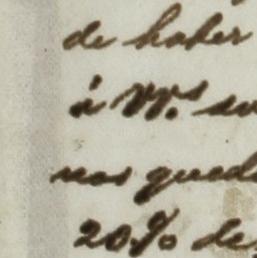 de haber
á VV.s su
nos qued
20% de